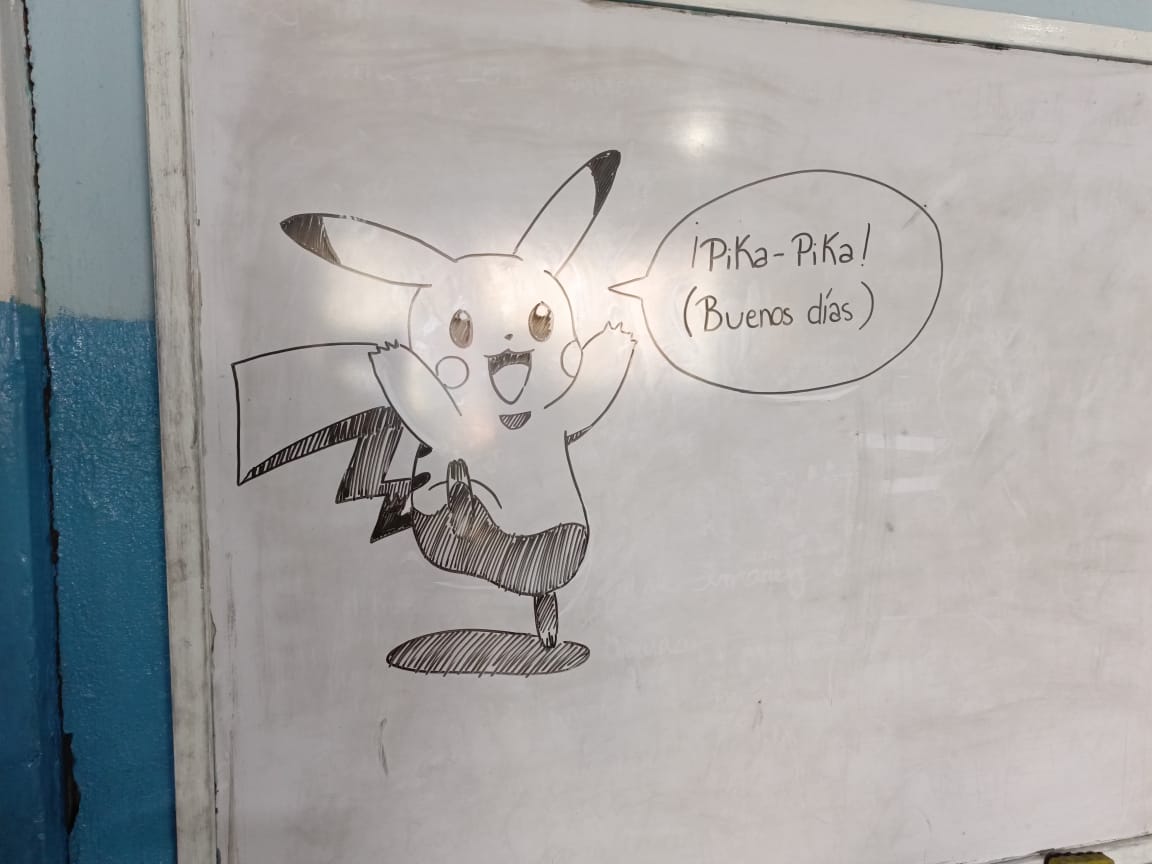 ¡Pika-Pika!
(Buenos días)